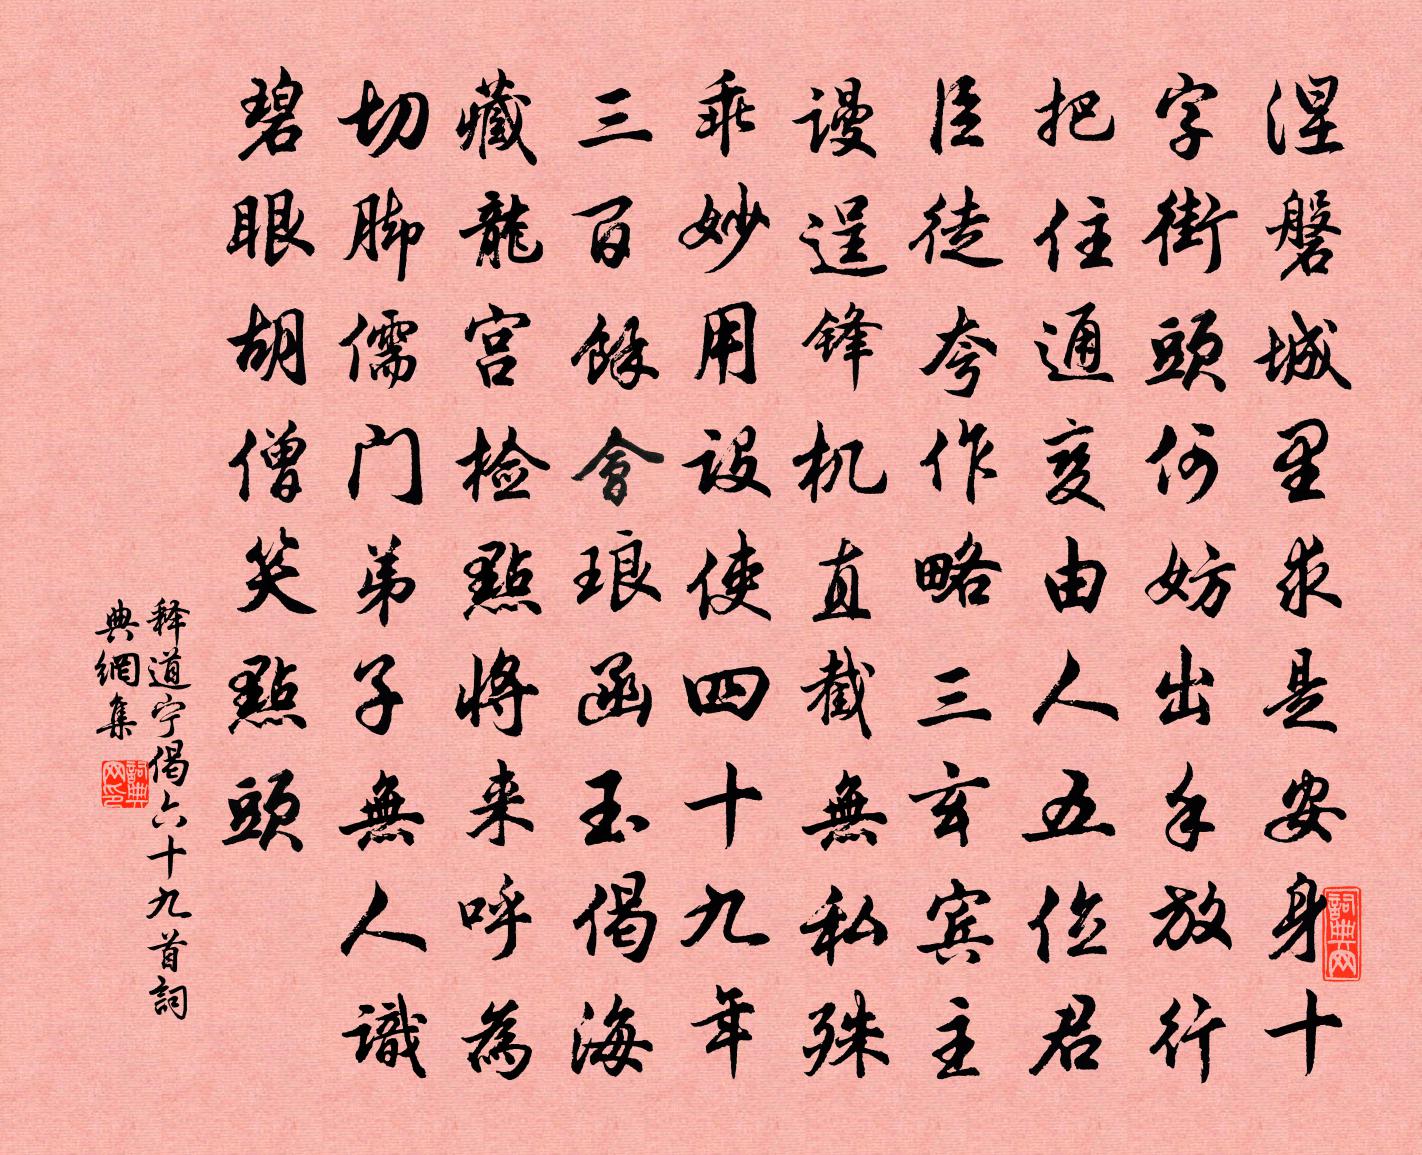 涅磐城里求是安身十
字街頭何妨出手放行
把住通变由人五位君
臣徒夸作略三玄宾主
謾逞锋机直截無私殊
乘妙用設使四十九年
三百餘會琅函玉偈海
藏龍宫檢點将来呼為
切脚儒门弟子無人識
碧眼胡僧笑點頭
释道宁偈六十九首詞
典網集
詞典网
詞典网印